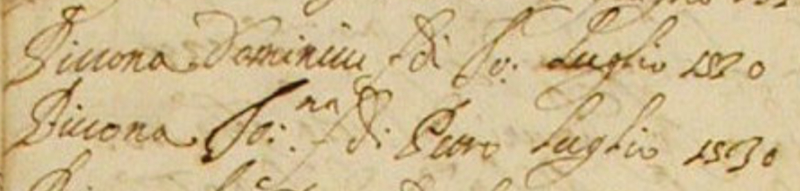 Piccona Dominicu f. di Jo: Luglio 1530
Piccona Jo: na f. di Piero Luglio 1530